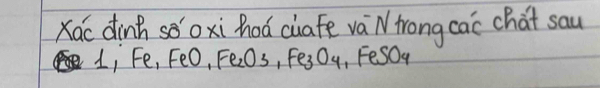 Xác định số oxi hoá của Fe và N trong các chất sau
1, Fe, FeO, Fe₂O₃, Fe₃O₄, FeSO₄